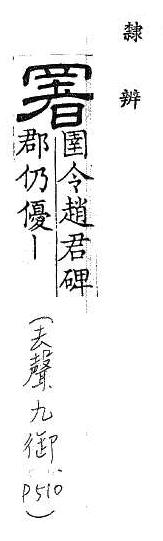 隸辨
署
圉令趙君碑
郡仍優｜
(去聲九御
P510)